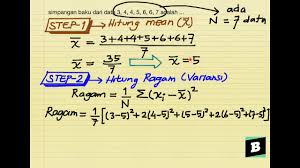 simpangan baku dari data 3, 4, 4, 5, 6, 6, 7 adalah ...
ada
N = 7 data
STEP-1 Hitung mean (x̄)
x̄ = 3+4+4+5+6+6+7 / 7
x̄ = 35/7 ⇒ x̄ = 5
STEP-2 Hitung Ragam (Variansi)
Ragam = 1/N Σ(xᵢ - x̄)²
Ragam = 1/7 [(3-5)²+2(4-5)²+(5-5)²+2(6-5)²+(7-5)²]
B